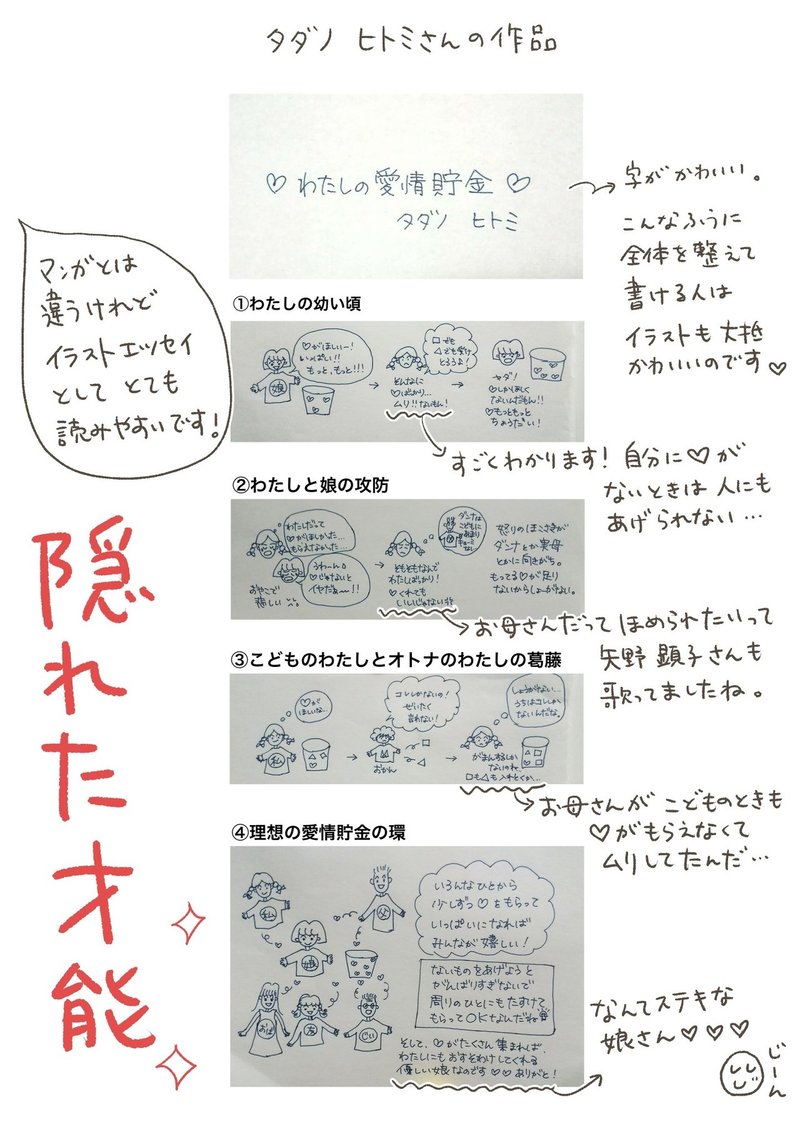 タダノ ヒトミさんの作品
♡ わたしの愛情貯金 ♡
タダノ ヒトミ
字がかわいい。
こんなふうに
全体を整えて
書ける人は
イラストも大抵
かわいいのです♡
マンガとは
違うけれど
イラストエッセイ
として とても
読みやすいです!
隠れた才能
①わたしの幼い頃
♡がほしいー!
いっぱい!!
もっと、もっと!!!
娘
そんなに
♡ばかり…
ムリ!!ないもん!
□も
△も受け
とろうよ!
ヤダ!
♡しかほしく
ないんだもん!!
♡もっともっと
ちょうだい!
すごくわかります! 自分に♡が
ないときは 人にも
あげられない…
②わたしと娘の攻防
わたしだって
♡がほしかった…
もらえなかった…
うわーん
♡じゃないと
イヤだぁ〜!!
おやこで
悲しい
ともともなんで
わたしばっかり!
♡くれても
いいじゃない
ダンナは
こどもに
あまり
キョーミ
なし
怒りのほこさきが
ダンナとか実母
とかに向きがち。
もってる♡が足り
ないからしょーがない。
お母さんだって ほめられたいって
矢野 顕子さんも
歌ってましたね。
③こどものわたしとオトナのわたしの葛藤
♡が
ほしいな…
私
コレしかないの!
ぜいたく
言わない!
おかん
しょうがない…
うちはコレしか
ないんだな。
がまんするしか
ないのね、
□も△も入れとくか…
お母さんが こどものときも
♡がもらえなくて
ムリしてたんだ…
④理想の愛情貯金の環
私
父
娘
おば
友
じい
いろんなひとから
少しずつ♡をもらって
いっぱいになれば
みんなが嬉しい!
ないものをあげようと
がんばりすぎないで
周りのひとにもたすけて
もらってOKなんだね
そして、♡がたくさん集まれば、
わたしにもおすそわけしてくれる
優しい娘なのです♡♡ありがと!
なんてステキな
娘さん♡♡♡
じーん